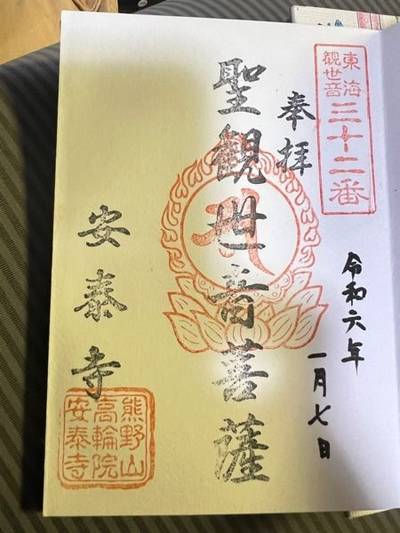 東海
観世音
三十二番
奉拝
令和六年
一月七日
聖観世音菩薩
安泰寺
熊野山
高輪院
安泰寺